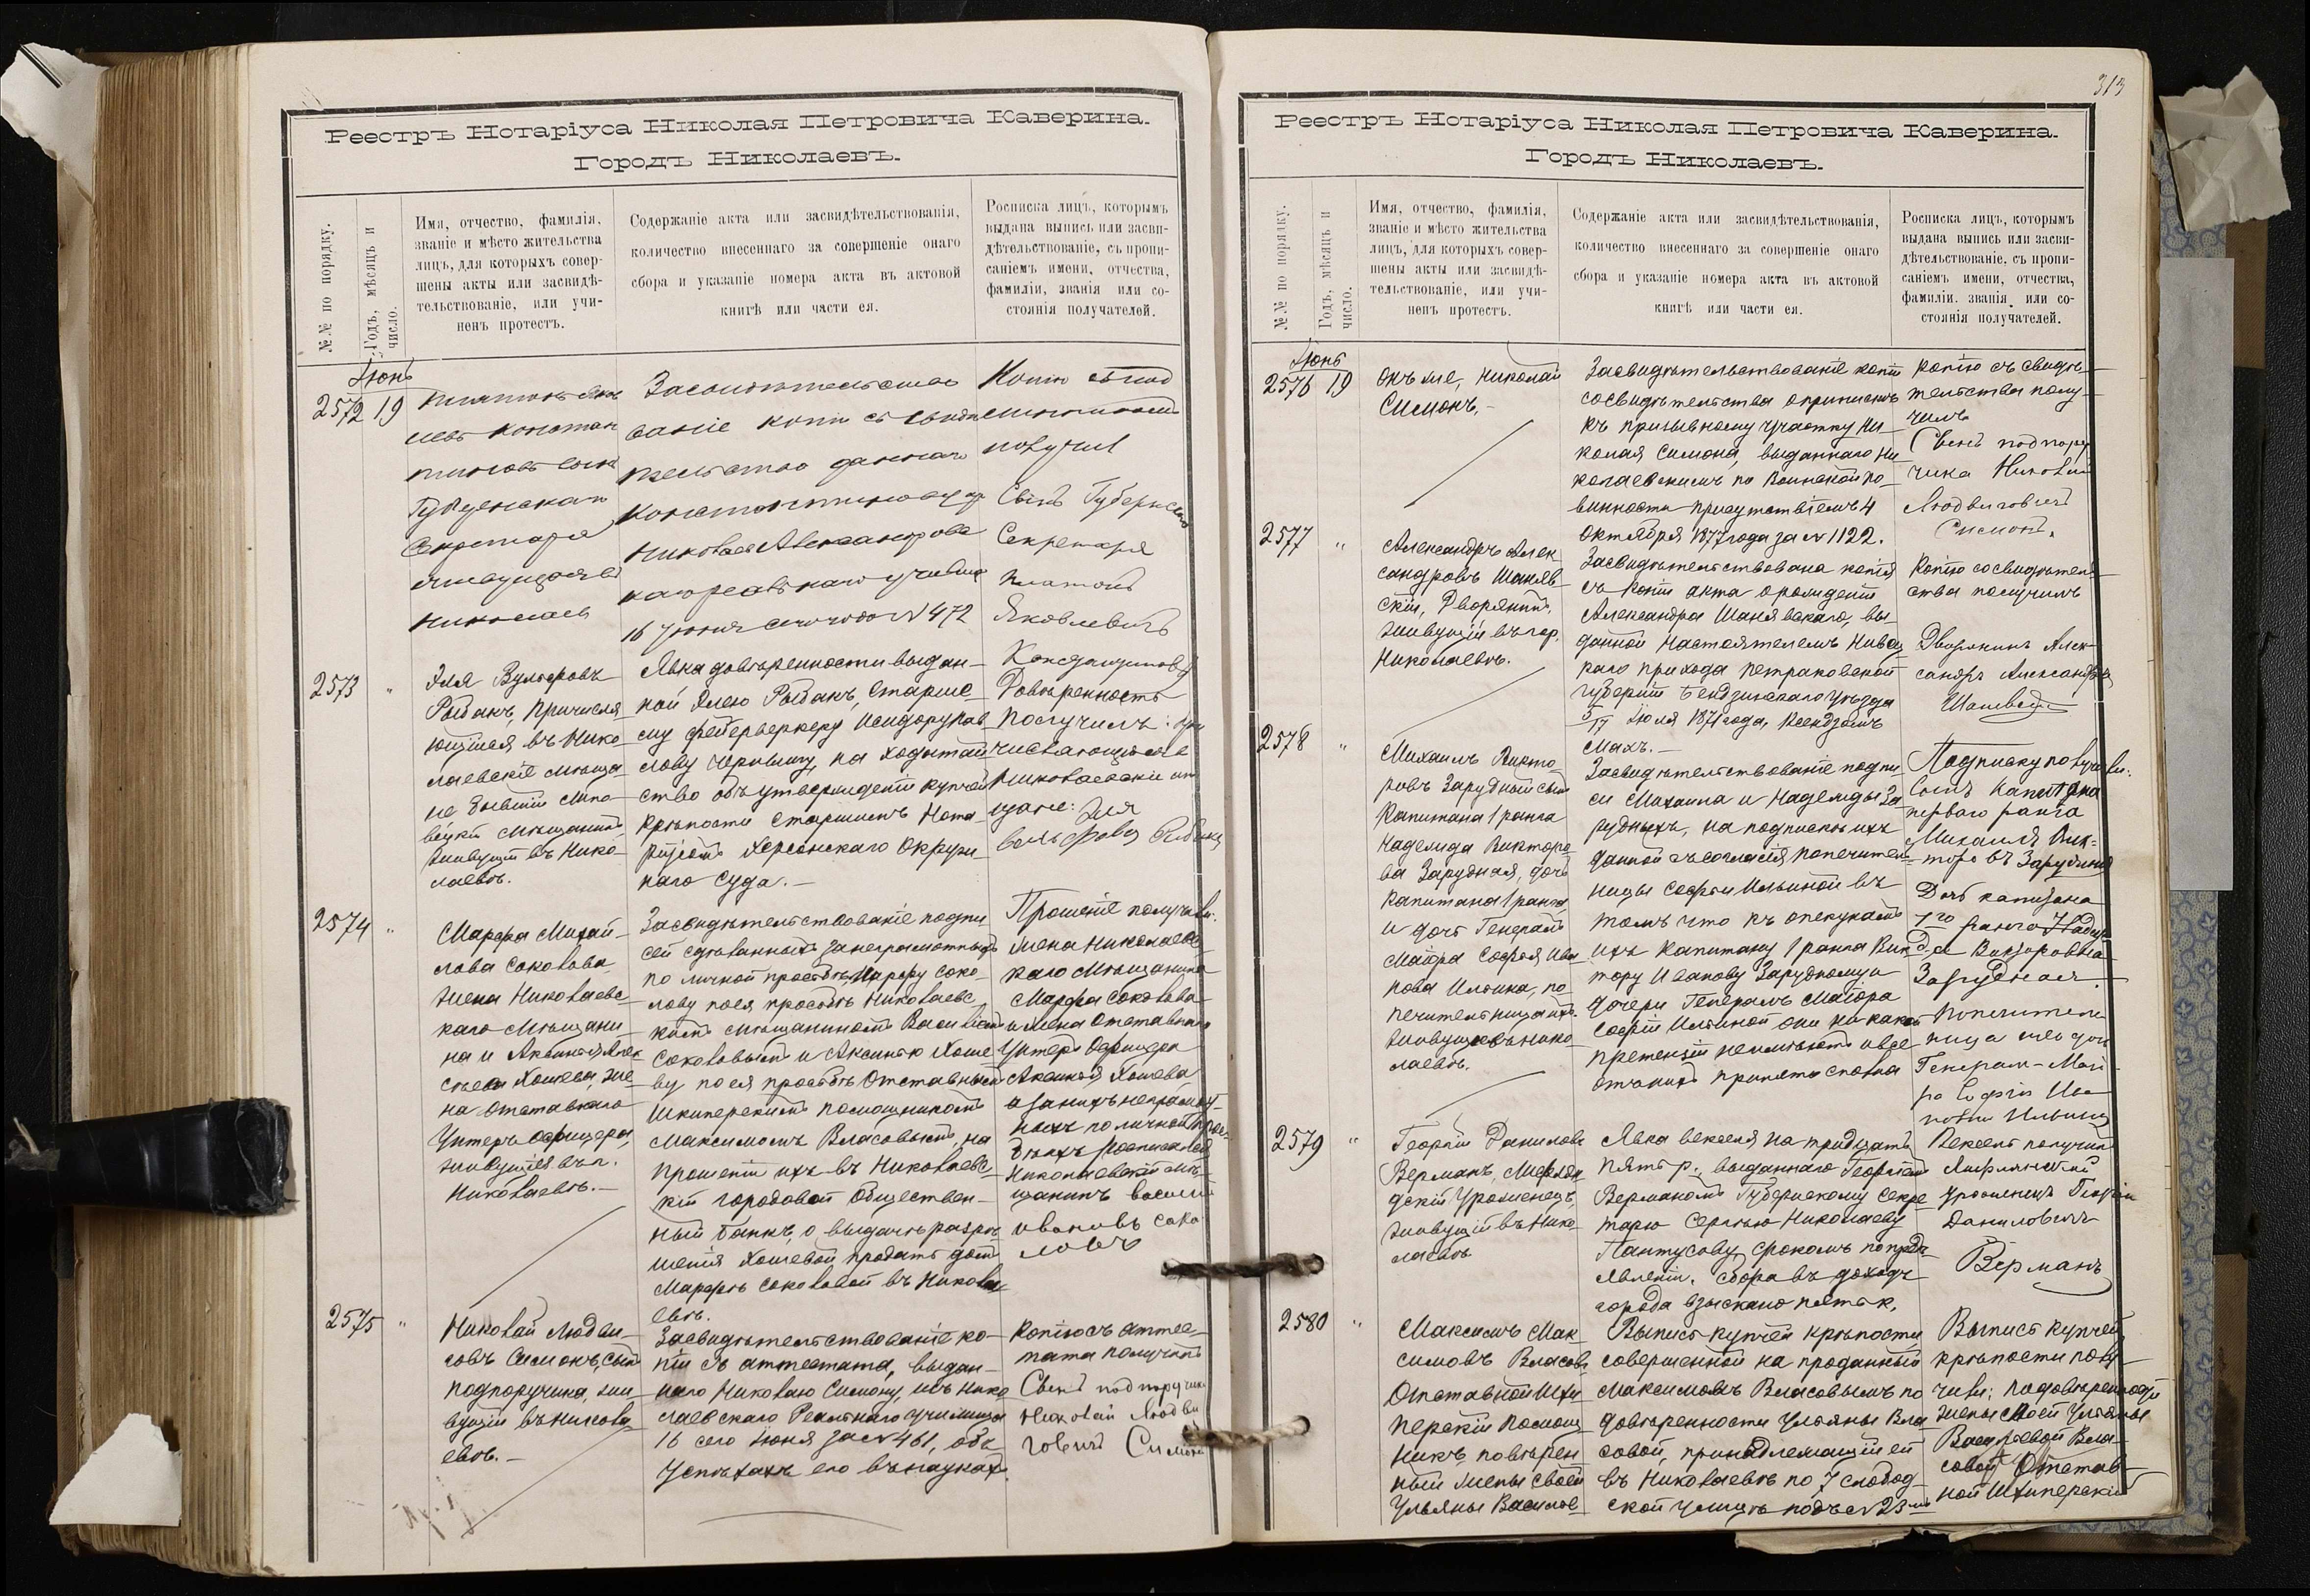 Реестръ Нотаріуса Николая Петровича Каверина.
Городъ Николаевъ.
№№ по порядку.
Годъ, мѣсяцъ и
число.
Имя, отчество, фамилія,
званіе и мѣсто жительства
лицъ, для которыхъ совер-
шены акты или засвидѣ-
тельствованіе, или учи-
ненъ протестъ.
Содержаніе акта или засвидѣтельствованія,
количество внесеннаго за совершеніе онаго
сбора и указаніе номера акта въ актовой
книгѣ или части ея.
Росписка лицъ, которымъ
выдана выпись или засви-
дѣтельствованіе, съ пропи-
саніемъ имени, отчества,
фамиліи, званія или со-
стоянія получателей.
Іюнь
2572 19
Платонъ Яков
левъ Констан
тиновъ сынъ
Секретаря
Николаевъ
Засвидѣтельство
ваніе копіи съ свидѣ
тельства даннаго
Константинову изъ
Николая Александрова
каго реальнаго училища
16 Іюня сего года № 472
Копію съ
получилъ
Сынъ Губернскаго
Секретаря
Платонъ
Яковлевичъ
2573 "
Эля Вульфовъ
Рыбакъ, Причисля
ющійся въ Нико
лаевскіе мѣща
не бывшій Липо
вецкій мѣщанинъ
живущій въ Нико
лаевѣ.
Явка довѣренности выдан-
ной Элею Рыбакъ, Старше
му фейерверкеру Исидору Пав
лову Чернышу, на ходатай
ство объ утвержденіи купчей
крѣпости Старшимъ Нота-
ріусомъ Херсонскаго Окруж-
наго Суда.-
Довѣренность
получилъ: при
числяющійся
Николаевскій мѣ
щане: Эля
Вольфовъ Рыбакъ
2574 "
Марфа Михай-
лова Соколова,
жена Николаевс
каго мѣщани
на и Аксинья Алек
сѣева Кошева, же
на отставнаго
Унтеръ Офицера,
живущія въ г.
Николаевѣ.-
Засвидѣтельствованіе подпи
сей сдѣланныхъ за неграмотныхъ
по личной просьбѣ, Марфу Соко-
лову по ея просьбѣ Николаевс
кимъ мѣщаниномъ Василіемъ
Соколовымъ и Аксинью Коше
ву по ея просьбѣ Отставнымъ
Шкиперскимъ помощникомъ
Максимомъ Власовымъ, на
прошеніи ихъ въ Николаевс-
кій городовой Обществен-
ный банкъ, о выдачѣ разрѣ
шенія Кошевой продать домъ
Марфѣ Соколовой въ Никола
евѣ.
Прошеніе получили:
жена Николаевс
каго Мѣщанина
Марфа Соколова
и жена Отставнаго
Унтеръ Офицера
Аксинья Кошева,
а за нихъ неграмот-
ныхъ по личной прось-
бѣ ихъ росписался
Николаевскій мѣ-
щанинъ Василій
Ивановъ Соко
ловъ
2575 "
Николай Людви-
говъ Симонъ, сынъ
подпоручика, жи
вущій въ Никола
евѣ.-
Засвидѣтельствованіе ко-
піи съ аттестата, выдан-
наго Николаю Симону, изъ Нико
лаевскаго Реальнаго училища
16 сего Іюня за № 461, объ
успѣхахъ его въ наукахъ.
Копію съ аттес-
тата получилъ
Сынъ подпоручика
Николай Людви
говичъ Симонъ
313
Реестръ Нотаріуса Николая Петровича Каверина.
Городъ Николаевъ.
№№ по порядку.
Годъ, мѣсяцъ и
число.
Имя, отчество, фамилія,
званіе и мѣсто жительства
лицъ, для которыхъ совер-
шены акты или засвидѣ-
тельствованіе, или учи-
ненъ протестъ.
Содержаніе акта или засвидѣтельствованія,
количество внесеннаго за совершеніе онаго
сбора и указаніе номера акта въ актовой
книгѣ или части ея.
Росписка лицъ, которымъ
выдана выпись или засви-
дѣтельствованіе, съ пропи-
саніемъ имени, отчества,
фамиліи, званія или со-
стоянія получателей.
Іюнь
2576 19
Онъ же, Николай
Симонъ.-
Засвидѣтельствованіе копіи
со свидѣтельства о припискѣ
къ призывному участку Ни
колая Симона, выданнаго Ни
колаевскимъ по Воинской по
винности присутствіемъ 4
Октября 1877 года за № 1122.
Копію съ свидѣ-
тельства полу-
чилъ
Сынъ подпору
чика Николай
Людвиговичъ
Симонъ.
2577 "
Александръ Алек
сандровъ Шаняв-
скій, Дворянинъ,
живущій въ гор.
Николаевѣ.
Засвидѣтельствована копія
съ копіи акта о рожденіи
Александра Шанявскаго, вы-
данной Настоятелемъ
каго прихода Петраковской
губерніи Бендзинскаго уѣзда
5/17 Іюля 1871 года, Ксендзомъ
Махъ.-
Копію со свидѣтель-
ства получилъ
Дворянинъ Алек-
сандръ Александр
2578 "
Михаилъ Викто-
ровъ Зарудный сынъ
Капитана 1 ранга
Надежда Викторо-
ва Зарудная, дочь
Капитана 1 ранга,
и дочь Генералъ
Маіора Софья Ива
нова Ильина, по
печительница ихъ.
живущіе въ Нико-
лаевѣ.
Засвидѣтельствованіе подпи
си Михаила и Надежды За
рудныхъ, на подпискѣ ихъ
данной съ согласія попечитель
ницы Софьи Ильиной въ
томъ что къ опекунамъ
ихъ Капитану 1 ранга Вик
тору Иванову Зарудному и
дочери Генералъ Маіора
Софіи Ильиной они никакой
претензіи не имѣютъ и все
отъ нихъ приняли сполна
Подписку получили:
Сынъ Капитана
перваго ранга
Михаилъ Вик-
торовъ Зарудный
Дочь капитана
1го ранга Надеж
да Викторовна
Зарудная.
Попечитель
ница дочь
Генералъ-Маіо
ра Софія Ива
новна Ильина
2579 "
Георгій Даниловъ
Верманъ, Лифлян
дскій Уроженецъ,
живущій въ Нико-
лаевѣ
Явка векселя на тридцать
пять р., выданнаго Георгіемъ
Верманомъ Губернскому Секре
тарю Сергѣю Николаеву
Пантусову, срокомъ по предъ-
явленіи. Сбора въ доходъ
города взыскано пять к.
Вексель получилъ
Лифляндскій
уроженецъ Георгій
Даниловичъ
Верманъ
2580 "
Максимъ Мак-
симовъ Власовъ
Отставной Шки
перскій Помощ
никъ, повѣрен
ный жены своей
Ульяны Василье-
Выпись купчей крѣпости
совершенной на проданный
Максимомъ Власовымъ по
довѣренности Ульяны Вла
совой, принадлежащій ей
въ Николаевѣ по 7 слобод-
ской улицѣ подъ № 23
Выпись купчей
крѣпости полу-
чилъ: по довѣренности
жены своей Ульяны
Васильевой Вла-
совой Отстав-
ной Шкиперскій